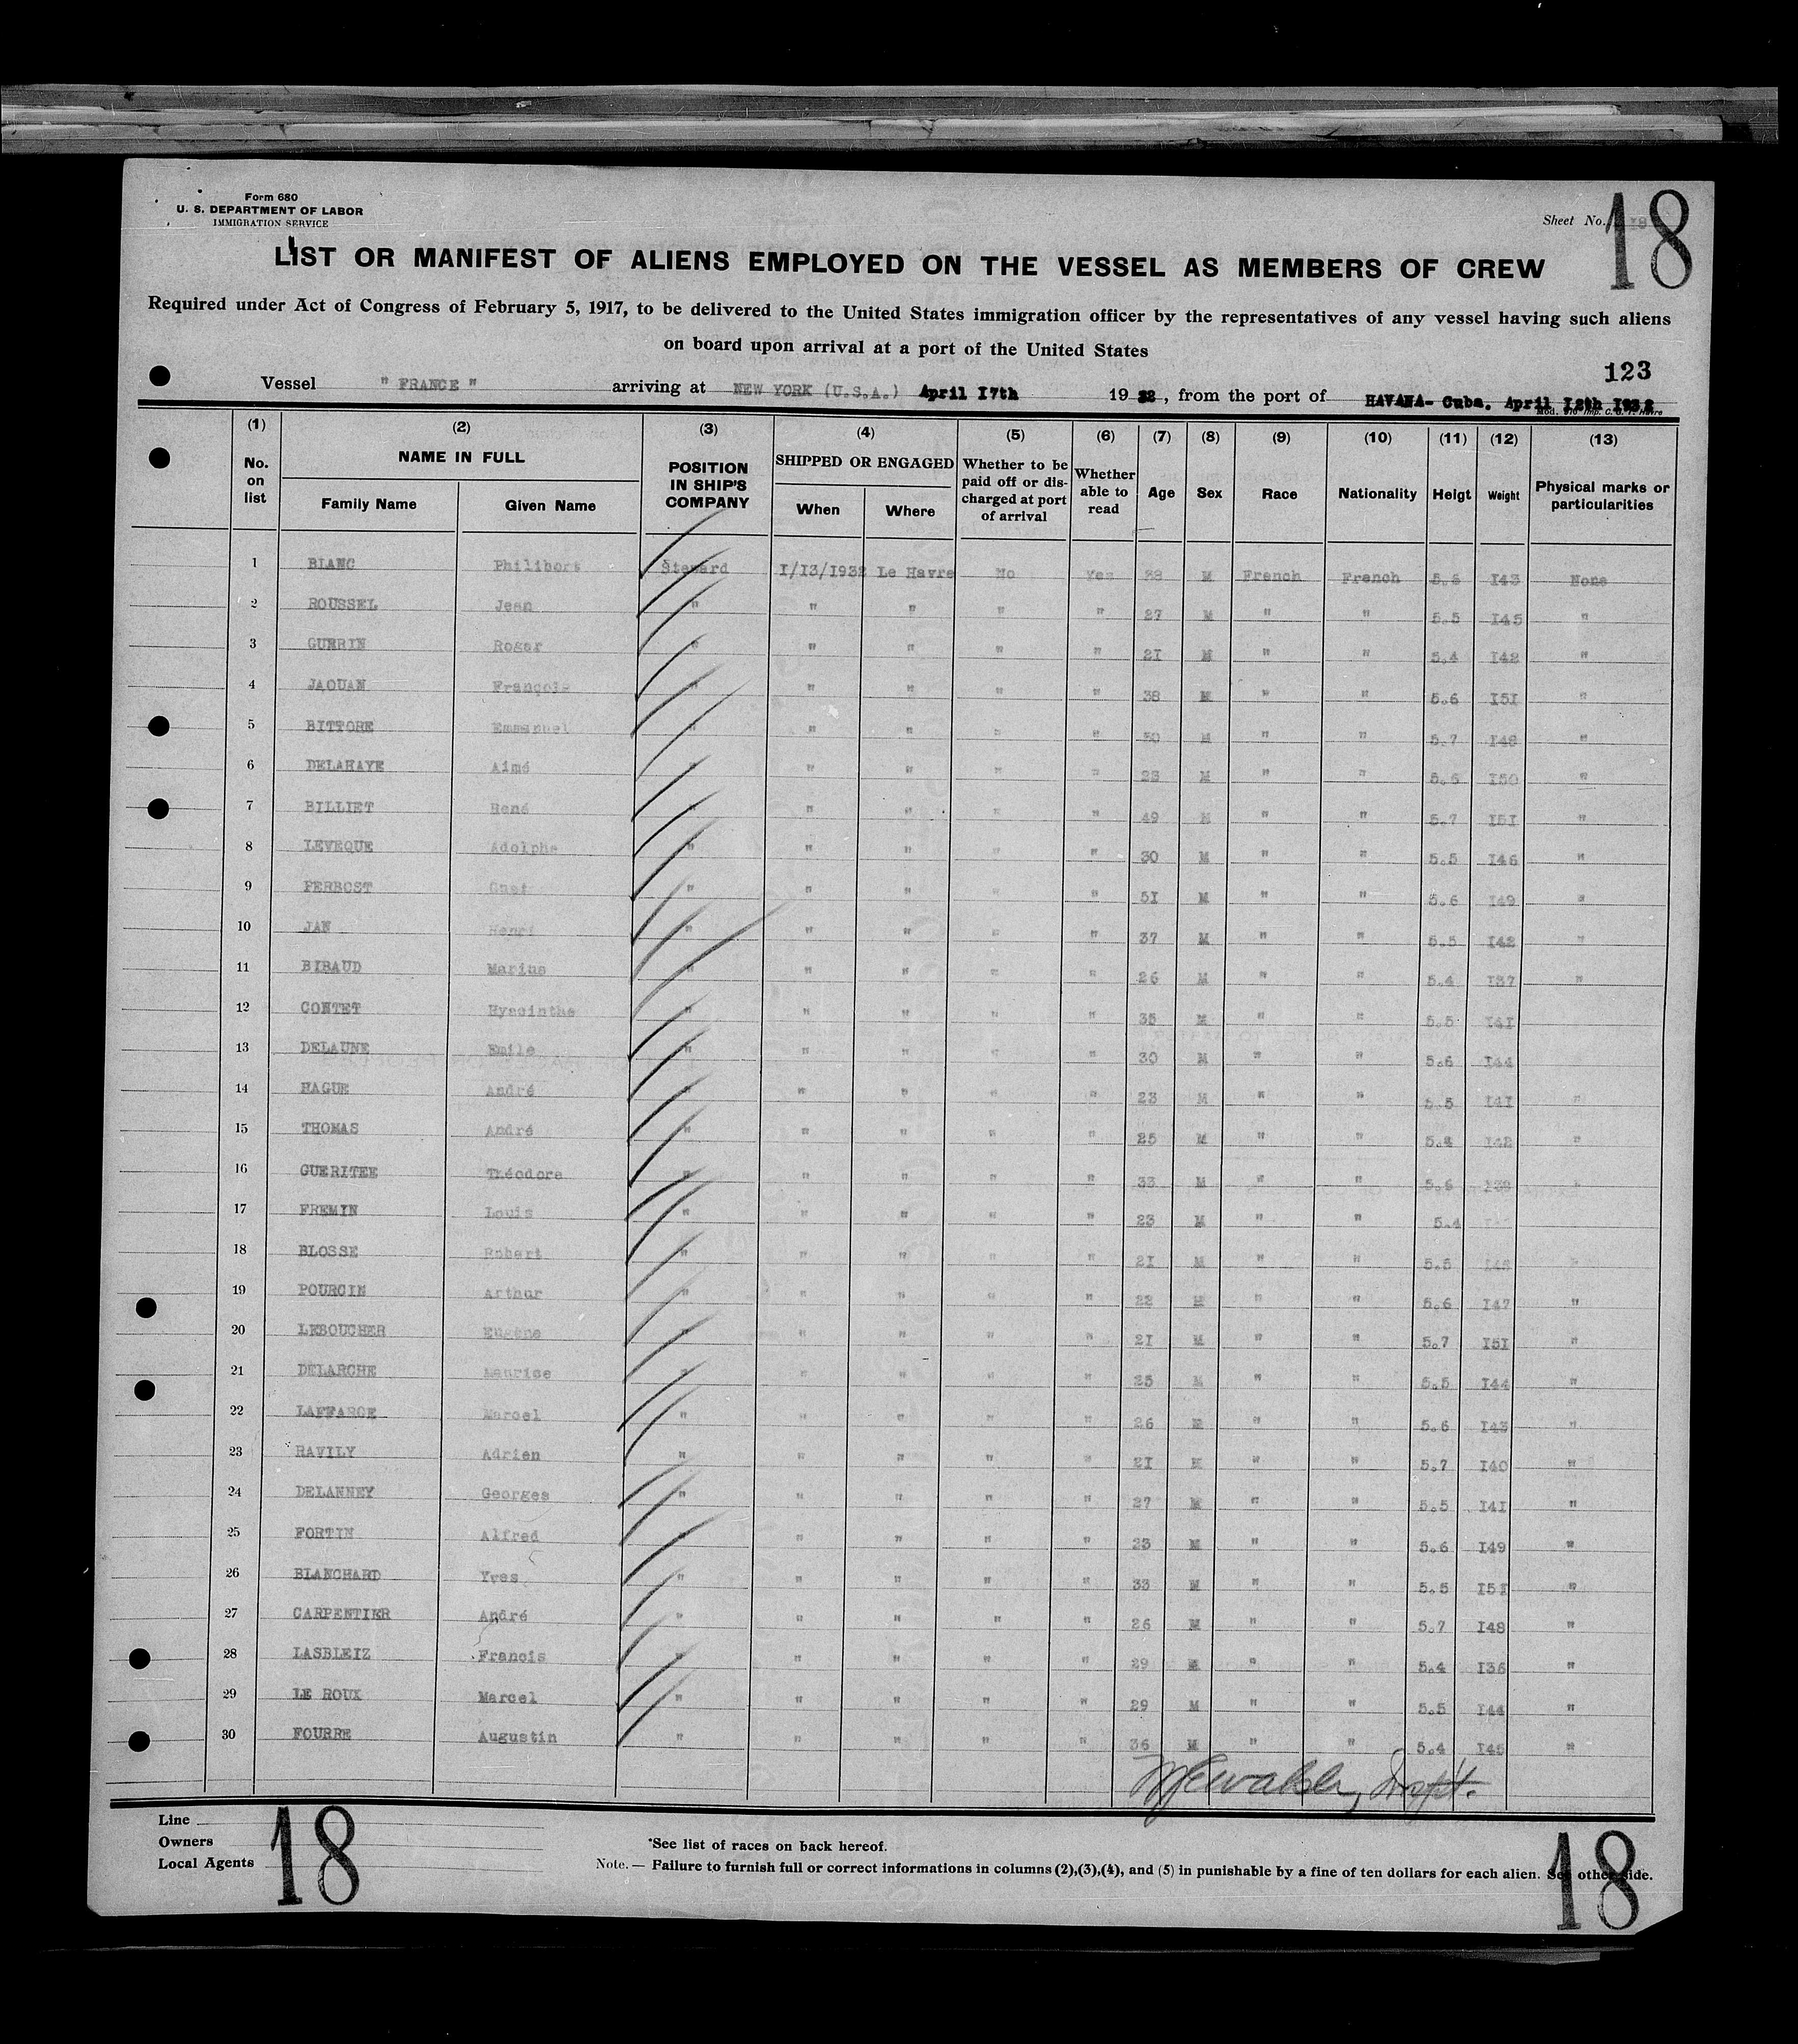 Form 680
U. S. DEPARTMENT OF LABOR
IMMIGRATION SERVICE
Sheet No. 18
18
LIST OR MANIFEST OF ALIENS EMPLOYED ON THE VESSEL AS MEMBERS OF CREW
Required under Act of Congress of February 5, 1917, to be delivered to the United States immigration officer by the representatives of any vessel having such aliens
on board upon arrival at a port of the United States
123
Vessel " FRANCE " arriving at NEW YORK (U.S.A.) April I7th 1932, from the port of HAVANA- Cuba. April I2th I932
(1) (2) (3) (4) (5) (6) (7) (8) (9) (10) (11) (12) (13)
No. on list NAME IN FULL Family Name Given Name POSITION IN SHIP'S COMPANY SHIPPED OR ENGAGED When Where Whether to be paid off or discharged at port of arrival Whether able to read Age Sex Race Nationality Helgt Weight Physical marks or particularities
1 BLANC Philibert Steward I/I3/1932 Le Havre No Yes M French French I43 None
2 ROUSSEL Jean " " " " " 27 M " " 5.5 I45 "
3 GUERIN Roger " " " " " 2I M " " 5.4 I42 "
4 JAOUAN François " " " " " 38 M " " 5.6 I5I "
5 BITTORE Emmanuel " " " " " 30 M " " 5.7 I48 "
6 DELAHAYE Aimé " " " " " M " " 5.6 I50 "
7 BILLIET René " " " " " 49 M " " 5.7 I5I "
8 LEVEQUE Adolphe " " " " " 30 M " " 5.5 I46 "
9 PERBOST " " " " " 5I M " " 5.6 I49 "
10 JAN Henri " " " " " 37 M " " 5.5 I42 "
11 BIBAUD Marius " " " " " 26 M " " 5.4 I37 "
12 CONTET Hyacinthe " " " " " 35 M " " 5.5 I4I
13 DELAUNE Emile " " " " " 30 M " " 5.6 I44
14 HAGUE André " " " " " 23 M " " 5.5 I4I "
15 THOMAS André " " " " " 25 M " " I42 "
16 GUERITEE Théodore " " " " " 33 M " " 5.6 "
17 FREMIN Louis " " " " " 23 M " " 5.4
18 BLOSSE Robert " " " " " 2I M " " 5.5 "
19 POURCIN Arthur " " " " " 22 M " " 5.6 I47 "
20 LEBOUCHER Eugène " " " " " 2I M " " 5.7 I5I "
21 DELARCHE Maurice " " " " " 25 M " " 5.5 I44 "
22 LAFFARGE Marcel " " " " " 26 M " " 5.6 I43 "
23 RAVILY Adrien " " " " " 2I M " " 5.7 I40 "
24 DELANNEY Georges " " " " " 27 M " " 5.5 I4I "
25 FORTIN Alfred " " " " " M " " 5.6 I49 "
26 BLANCHARD Yves " " " " " 33 M " " 5.5 I5I "
27 CARPENTIER André " " " " " 26 M " " 5.7 I48 "
28 LASBLEIZ Francis " " " " " 29 M " " 5.4 I36 "
29 LE ROUX Marcel " " " " " 29 M " " 5.5 I44 "
30 FOURRE Augustin " " " " " 36 M " " 5.4 I45 "
Line
Owners
Local Agents
18
*See list of races on back hereof.
Note. — Failure to furnish full or correct informations in columns (2),(3),(4), and (5) in punishable by a fine of ten dollars for each alien. See other side.
18